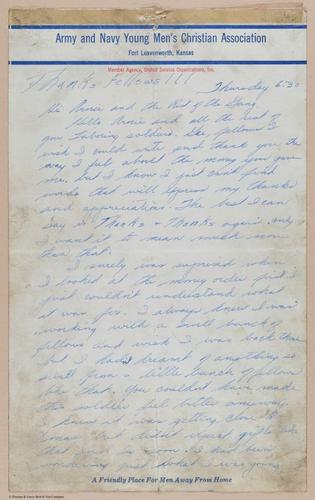 Army and Navy Young Men's Christian Association
Fort Leavenworth, Kansas
Member Agency, United Service Organizations, Inc.
Thanks Fellows!!!
Thursday 6:30
Hi Annie and the Rest of the Gang
Hello Annie and all the rest of
you Laboring soldiers. Gee fellows I
wish I could write and thank you the
way I feel about the money you gave
me. but I know I just can't find
words that will express my thanks
and appreciation. The best I can
say is Thanks + Thanks again and
I want it to mean much more
than that.
I surely was supresed when
I looked at the money order first I
just couldn't understand what
it was for. I always knew I was
working with a swell bunch of
fellows and wish I was back there
but I dreamt of anything so
swell from a little bunch of fellows
like that. You couldn't have made
this soldier feel better anyway.
I knew it was getting close to
Xmas but didn't expect gifts like
that for soon. I had been
wondering just what I was going
A Friendly Place For Men Away From Home